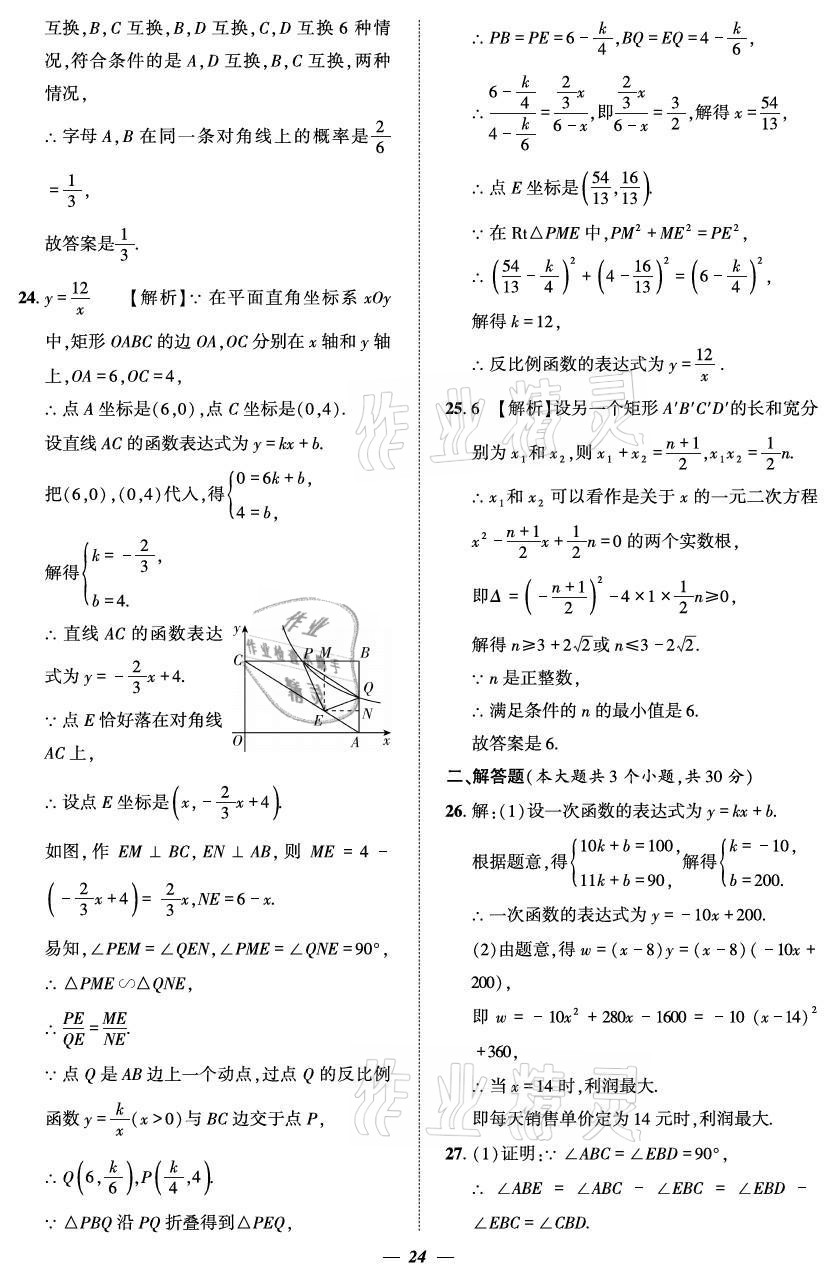 互换,B,C 互换,B,D 互换,C,D 互换 6 种情
况,符合条件的是 A,D 互换,B,C 互换,两种
情况,
∴ 字母 A,B 在同一条对角线上的概率是 2/6
= 1/3,
故答案是 1/3.
24. y = 12/x 【解析】∵ 在平面直角坐标系 xOy
中,矩形 OABC 的边 OA,OC 分别在 x 轴和 y 轴
上,OA = 6,OC = 4,
∴ 点 A 坐标是(6,0),点 C 坐标是(0,4).
设直线 AC 的函数表达式为 y = kx + b.
把(6,0),(0,4)代人,得{0 = 6k + b, 4 = b,
解得{k = -2/3, b = 4.
∴ 直线 AC 的函数表达
式为 y = -2/3x + 4.
∵ 点 E 恰好落在对角线
AC 上,
y C P M B Q E N O A x
∴ 设点 E 坐标是(x, -2/3x + 4).
如图,作 EM ⊥ BC, EN ⊥ AB, 则 ME = 4 -
(-2/3x + 4) = 2/3x, NE = 6 - x.
易知,∠PEM = ∠QEN,∠PME = ∠QNE = 90°,
∴ △PME ∽ △QNE,
∴ PE/QE = ME/NE.
∵ 点 Q 是 AB 边上一个动点,过点 Q 的反比例
函数 y = k/x (x > 0)与 BC 边交于点 P,
∴ Q(6, k/6), P(k/4, 4).
∵ △PBQ 沿 PQ 折叠得到△PEQ,
∴ PB = PE = 6 - k/4, BQ = EQ = 4 - k/6,
∴ (6 - k/4)/(4 - k/6) = (2/3x)/(6 - x),即 (2/3x)/(6 - x) = 3/2,解得 x = 54/13,
∴ 点 E 坐标是(54/13, 16/13).
∵ 在 Rt△PME 中,PM² + ME² = PE²,
∴ (54/13 - k/4)² + (4 - 16/13)² = (6 - k/4)²,
解得 k = 12,
∴ 反比例函数的表达式为 y = 12/x.
25. 6 【解析】设另一个矩形 A′B′C′D′的长和宽分
别为 x₁和 x₂,则 x₁ + x₂ = (n+1)/2, x₁x₂ = 1/2n.
∴ x₁和 x₂ 可以看作是关于 x 的一元二次方程
x² - (n+1)/2x + 1/2n = 0 的两个实数根,
即Δ = (-(n+1)/2)² - 4×1×1/2n ≥ 0,
解得 n ≥ 3 + 2√2 或 n ≤ 3 - 2√2.
∵ n 是正整数,
∴ 满足条件的 n 的最小值是 6.
故答案是 6.
二、解答题(本大题共 3 个小题,共 30 分)
26. 解:(1)设一次函数的表达式为 y = kx + b.
根据题意,得{10k + b = 100, 11k + b = 90, 解得{k = -10, b = 200.
∴ 一次函数的表达式为 y = -10x + 200.
(2)由题意,得 w = (x - 8)y = (x - 8)(-10x +
200),
即 w = -10x² + 280x - 1600 = -10 (x - 14)²
+360,
∴ 当 x = 14 时,利润最大.
即每天销售单价定为 14 元时,利润最大.
27. (1)证明:∵ ∠ABC = ∠EBD = 90°,
∴ ∠ABE = ∠ABC - ∠EBC = ∠EBD -
∠EBC = ∠CBD.
— 24 —
作业精灵
作业精灵
作业
作业检查小助手
精灵